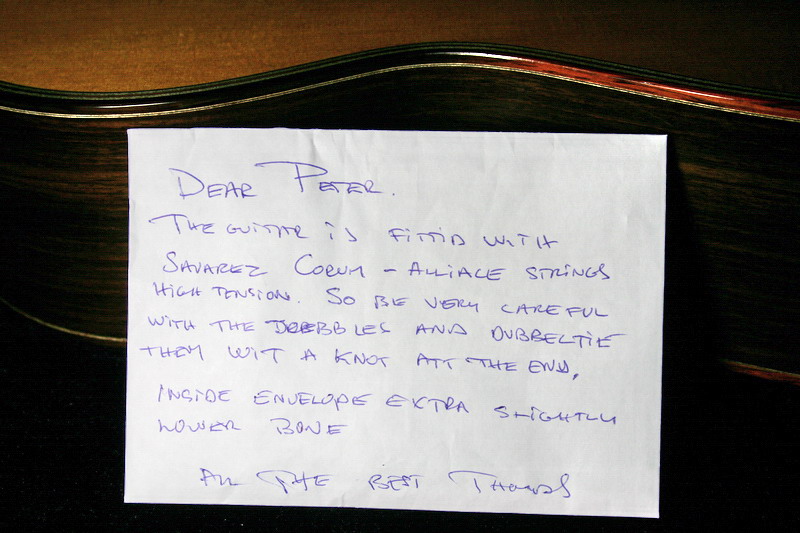 DEAR PETER.
THE GUITAR IS FITTID WITH
SAVAREZ CORUM - ALLIACE STRINGS
HIGH TENSION. SO BE VERY CAREFUL
WITH THE TREBBLES AND DUBBELTIE
THEM WIT A KNOT ATT THE END,
INSIDE ENVELOPE EXTRA SLIGHTLY
LOWER BONE
ALL THE BEST THOMAS